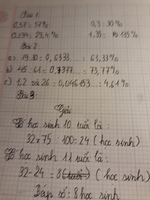 Bài 1
0,57 = 57% 0,3 = 30%
0,234 = 23,4% 1,35 = 135%
Bài 2
a) 19:30 = 0,6333... = 63,33%
b) 45:61 = 0,7377... = 73,77%
c) 1,2:26 = 0,046153... = 4,61%
Bài 3
Giải
Số học sinh 10 tuổi là:
32 x 75 : 100 = 24 (học sinh)
Số học sinh 11 tuổi là:
32 - 24 = 8 (học sinh)
Đáp số: 8 học sinh